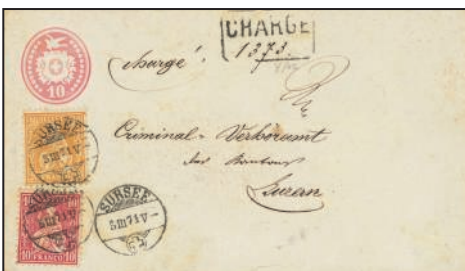 CHARGÉ
1373.
10
chargé.
Criminal-Verhöramt
des Kantons
Luzern
SURSEE
5.III.71.V-
SURSEE
5.III.71.V-
SURSEE
5.III.71.V-
10 FRANCO 10